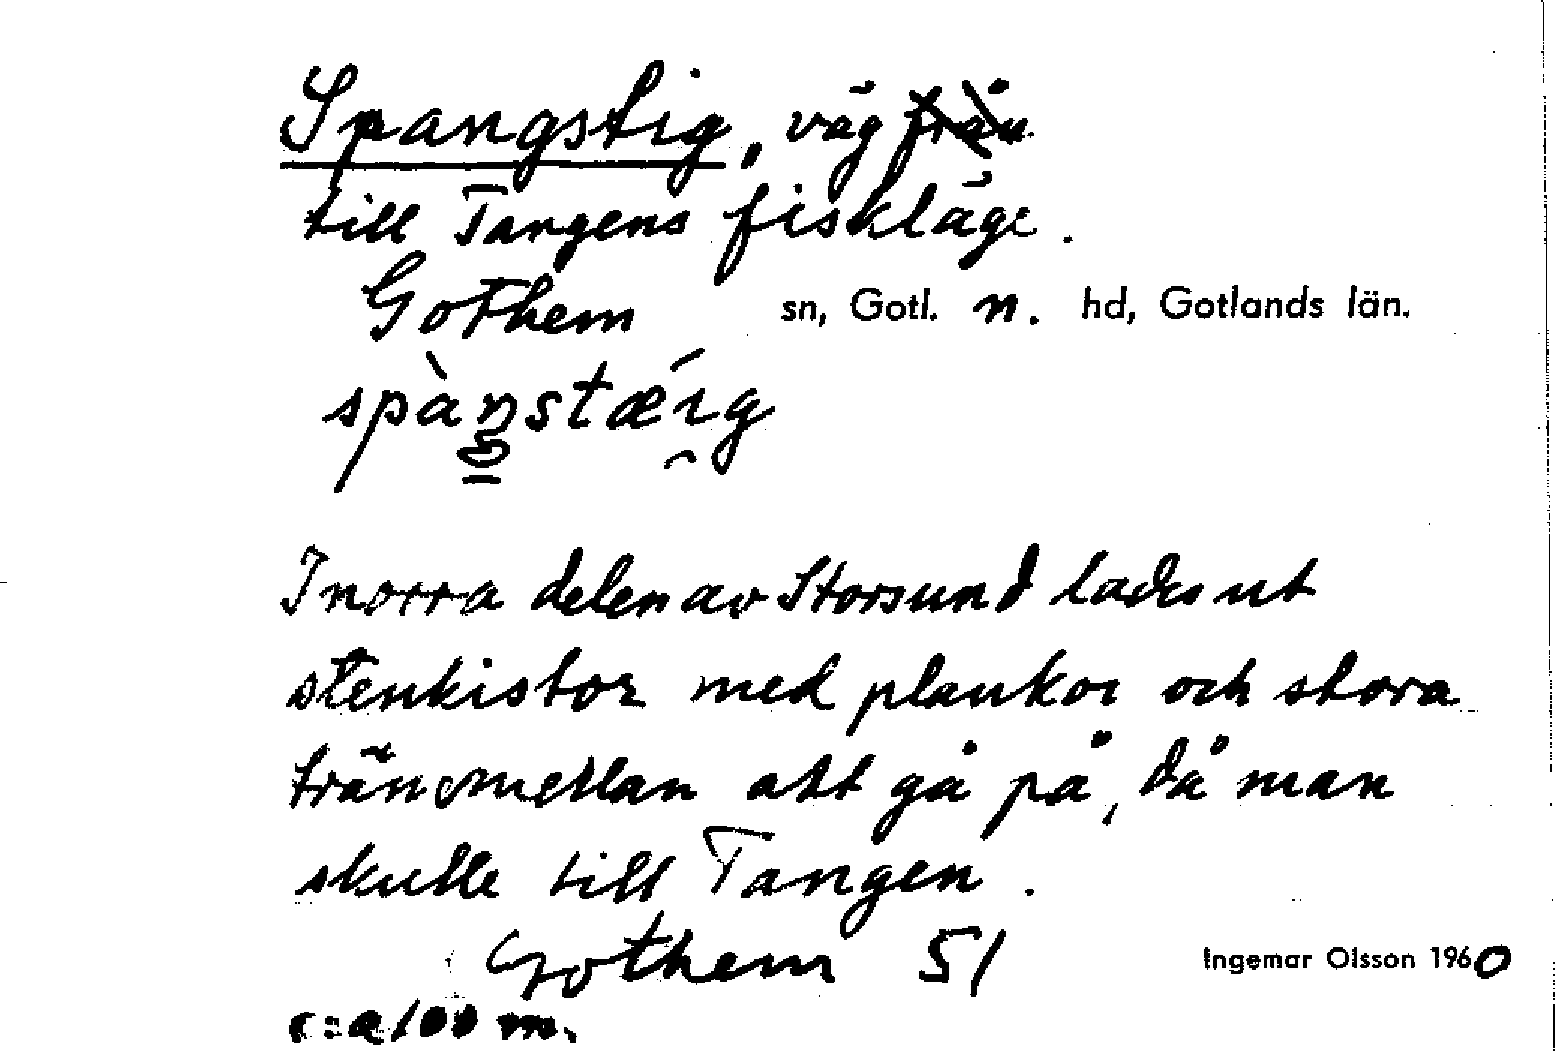 Spangstig, väg från
till Tangens fiskläge.
Gothem sn, Gotl. n. hd, Gotlands län.
spàŋstǽi̯g
I norra delen av Storsund lades ut
stenkistor med plankor och stora
trän emellan att gå på, då man
skulle till Tangen.
Gothem 51 Ingemar Olsson 1960
c:a 100 m.